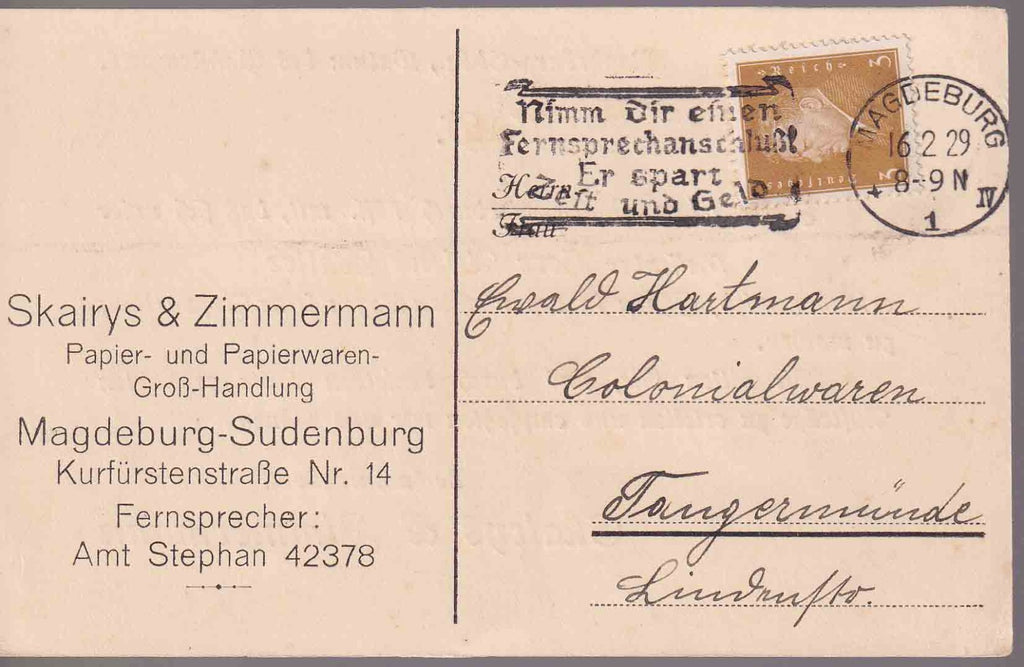 Skairys & Zimmermann
Papier- und Papierwaren-
Groß-Handlung
Magdeburg-Sudenburg
Kurfürstenstraße Nr. 14
Fernsprecher:
Amt Stephan 42378
Nimm Dir einen
Fernsprechanschluß!
Er spart
Zeit und Geld
Deutsches Reich
3 3
MAGDEBURG
16.2.29
8-9 N
IV
1
Herrn
Frau
Ewald Hartmann
Colonialwaren
Tangermünde
Lindenstr.